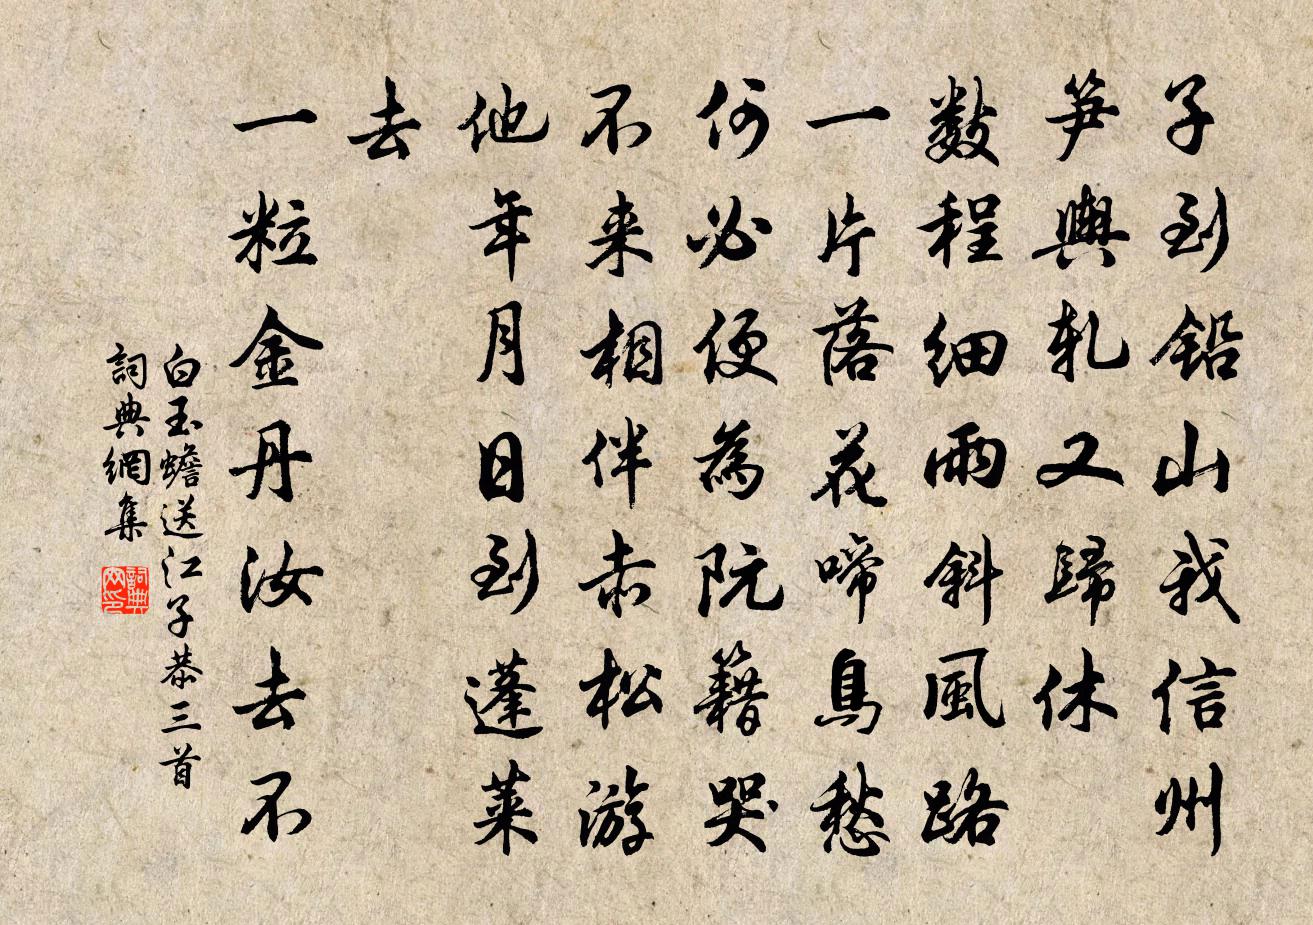 子到鉛山我信州
笋輿軋又歸休
數程細雨斜風路
一片落花啼鳥愁
何必便為阮籍哭
不来相伴赤松游
他年月日到蓬莱
去
一粒金丹汝去不
白玉蟾送江子恭三首
詞典網集
詞典網印